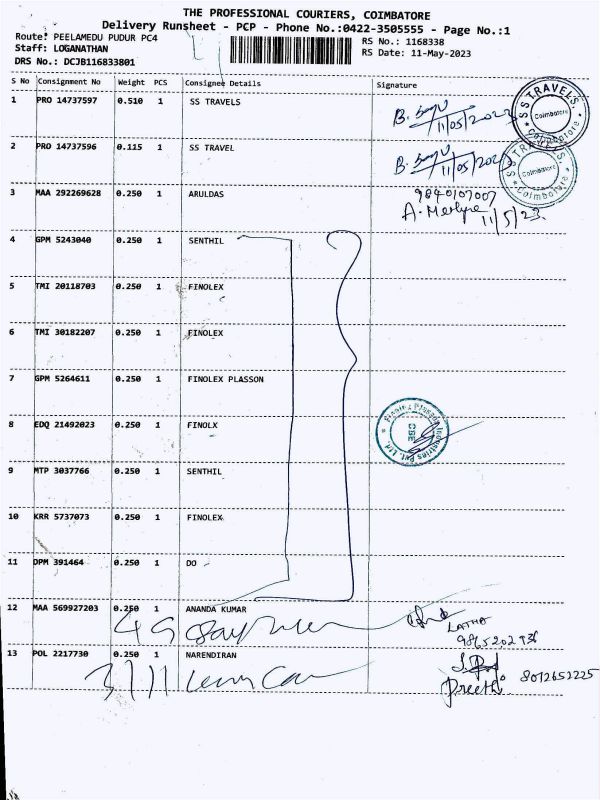 THE PROFESSIONAL COURIERS, COIMBATORE
Delivery Runsheet - PCP - Phone No.:0422-3505555 - Page No.:1
Route: PEELAMEDU PUDUR PC4 RS No.: 1168338
Staff: LOGANATHAN RS Date: 11-May-2023
DRS No.: DCJB116833801
S No Consignment No Weight PCS Consignee Details Signature
1 PRO 14737597 0.510 1 SS TRAVELS 11/05/2023 SS TRAVELS, Coimbatore Coimbatore
2 PRO 14737596 0.115 1 SS TRAVEL 11/05/202 SS TRAVELS, Coimbatore Coimbatore
3 MAA 292269628 0.250 1 ARULDAS 9840107007
11/5/23
4 GPM 5243040 0.250 1 SENTHIL
5 TMI 20118703 0.250 1 FINOLEX
6 TMI 30182207 0.250 1 FINOLEX
7 GPM 5264611 0.250 1 FINOLEX PLASSON
8 EDQ 21492023 0.250 1 FINOLX Industries Pvt. Ltd. CBE
9 MTP 3037766 0.250 1 SENTHIL
10 KRR 5737073 0.250 1 FINOLEX
11 DPM 391464 0.250 1 DO
12 MAA 569927203 0.250 1 ANANDA KUMAR
LATHA
13 POL 2217730 0.250 1 NARENDIRAN
Preethi 8012652225